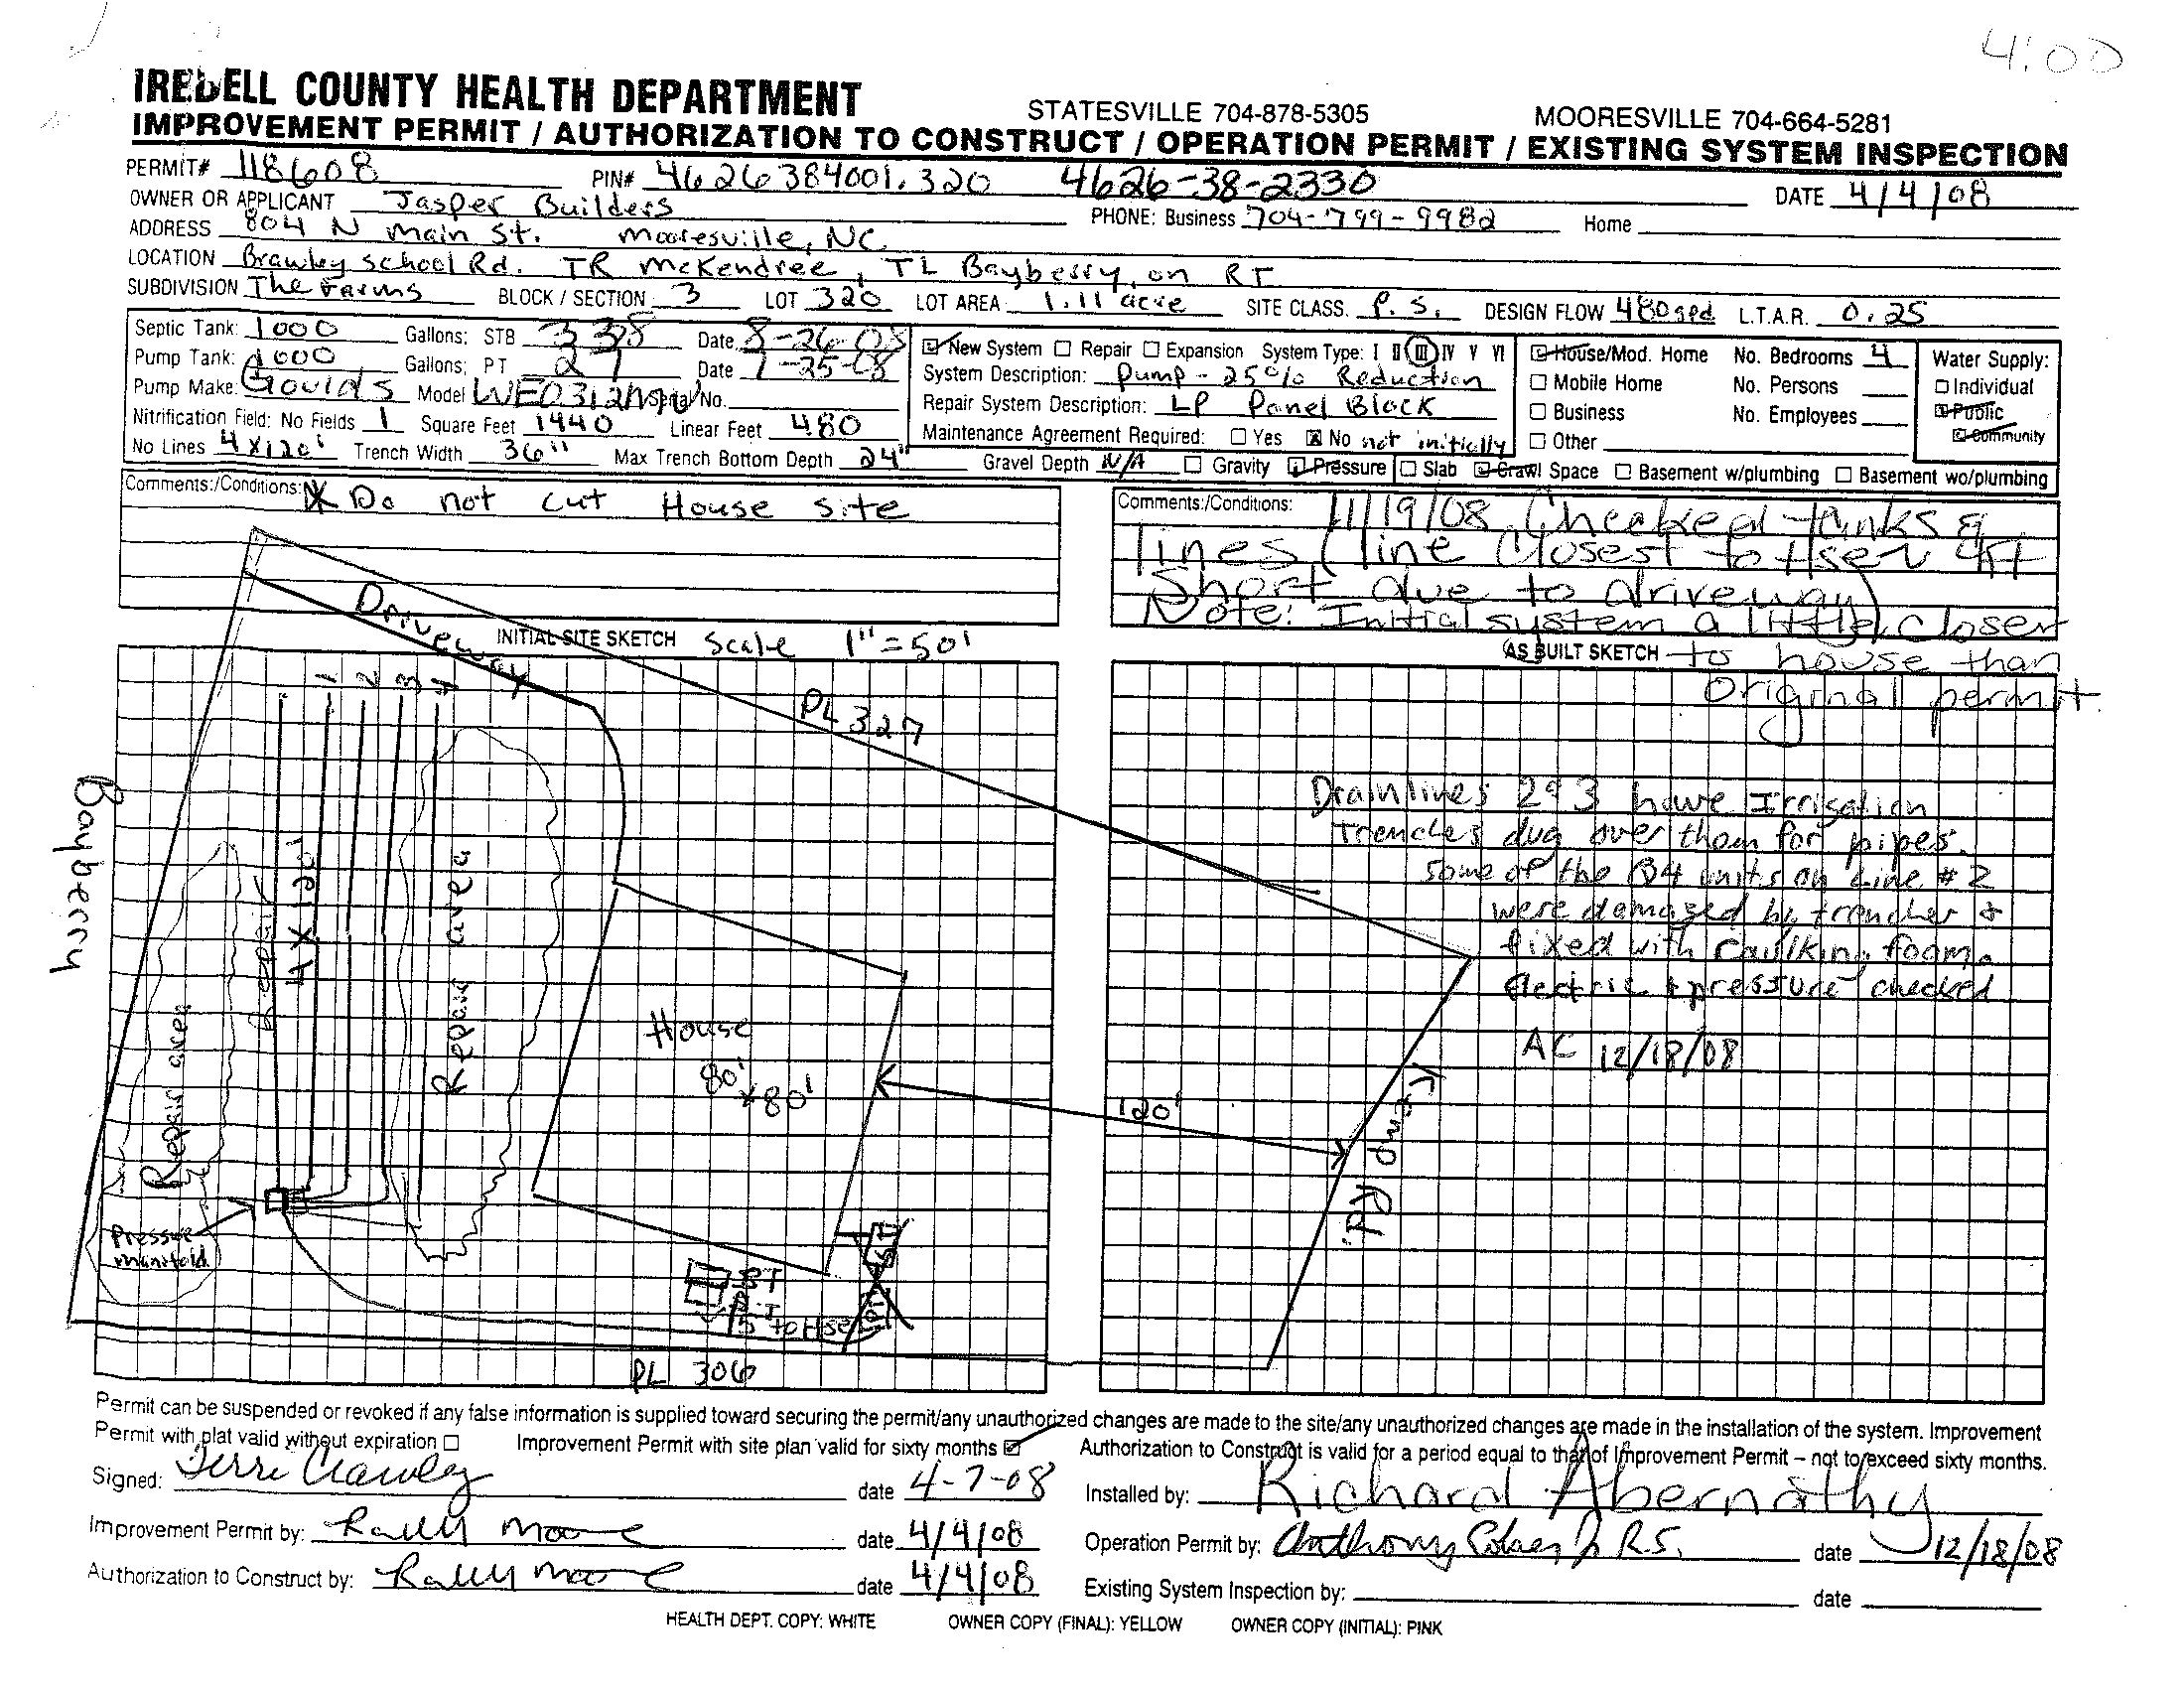 4:00
IREDELL COUNTY HEALTH DEPARTMENT STATESVILLE 704-878-5305 MOORESVILLE 704-664-5281
IMPROVEMENT PERMIT / AUTHORIZATION TO CONSTRUCT / OPERATION PERMIT / EXISTING SYSTEM INSPECTION
PERMIT# 118608 PIN# 4626384001.320 4626-38-2330 DATE 4/4/08
OWNER OR APPLICANT Jasper Builders PHONE: Business 704-799-9982 Home
ADDRESS 804 N Main St. Mooresville, NC
LOCATION Brawley School Rd. TR McKendree, TL Bayberry, on RT
SUBDIVISION The Farms BLOCK / SECTION 3 LOT 320 LOT AREA 1.11 acre SITE CLASS. P.S. DESIGN FLOW 480gpd L.T.A.R. 0.25
Septic Tank: 1000 Gallons: STB 335 Date 8-26-08
Pump Tank: 1000 Gallons: PT 21 Date 1-25-08
Pump Make: Goulds Model Serial No.
Nitrification Field: No Fields 1 Square Feet 1440 Linear Feet 480
No Lines 4x120' Trench Width 36" Max Trench Bottom Depth 24" Gravel Depth N/A Gravity Pressure Slab Crawl Space Basement w/plumbing Basement wo/plumbing
New System Repair Expansion System Type: I II III IV V VI
System Description: Pump - 25% Reduction
Repair System Description: LP Panel Block
Maintenance Agreement Required: Yes No not initially
House/Mod. Home No. Bedrooms 4
Mobile Home No. Persons
Business No. Employees
Other
Water Supply:
Individual
Public
Community
Comments:/Conditions: * Do not cut House site
Comments:/Conditions: 11/19/08 Checked tanks &
lines (line closest to Hse 4ft
Short due to driveway)
Note: Initial system a little closer
to house than
Original permit.
INITIAL SITE SKETCH Scale 1"=50'
AS BUILT SKETCH
Driveway
1 2 3 4
PL 327
Bayberry
4x120'
Repair
Repair area
Repair area
House
80'
x80'
120'
Pressure
manifold
ST
P.T
5' to Hse
PT
ST
PL 306
Drainlines 2&3 have Irrigation
Trenches dug over them for pipes.
Some of the Q4 units on Line #2
were damaged by trencher &
fixed with Caulking foam.
Electric & pressure checked
AC 12/18/08
Rd.
Permit can be suspended or revoked if any false information is supplied toward securing the permit/any unauthorized changes are made to the site/any unauthorized changes are made in the installation of the system. Improvement
Permit with plat valid without expiration Improvement Permit with site plan valid for sixty months Authorization to Construct is valid for a period equal to that of Improvement Permit – not to exceed sixty months.
Signed: date 4-7-08 Installed by: Richard Abernathy
Improvement Permit by: Moore date 4/4/08 Operation Permit by: Anthony R.S. date 12/18/08
Authorization to Construct by: Moore date 4/4/08 Existing System Inspection by: date
HEALTH DEPT. COPY: WHITE OWNER COPY (FINAL): YELLOW OWNER COPY (INITIAL): PINK